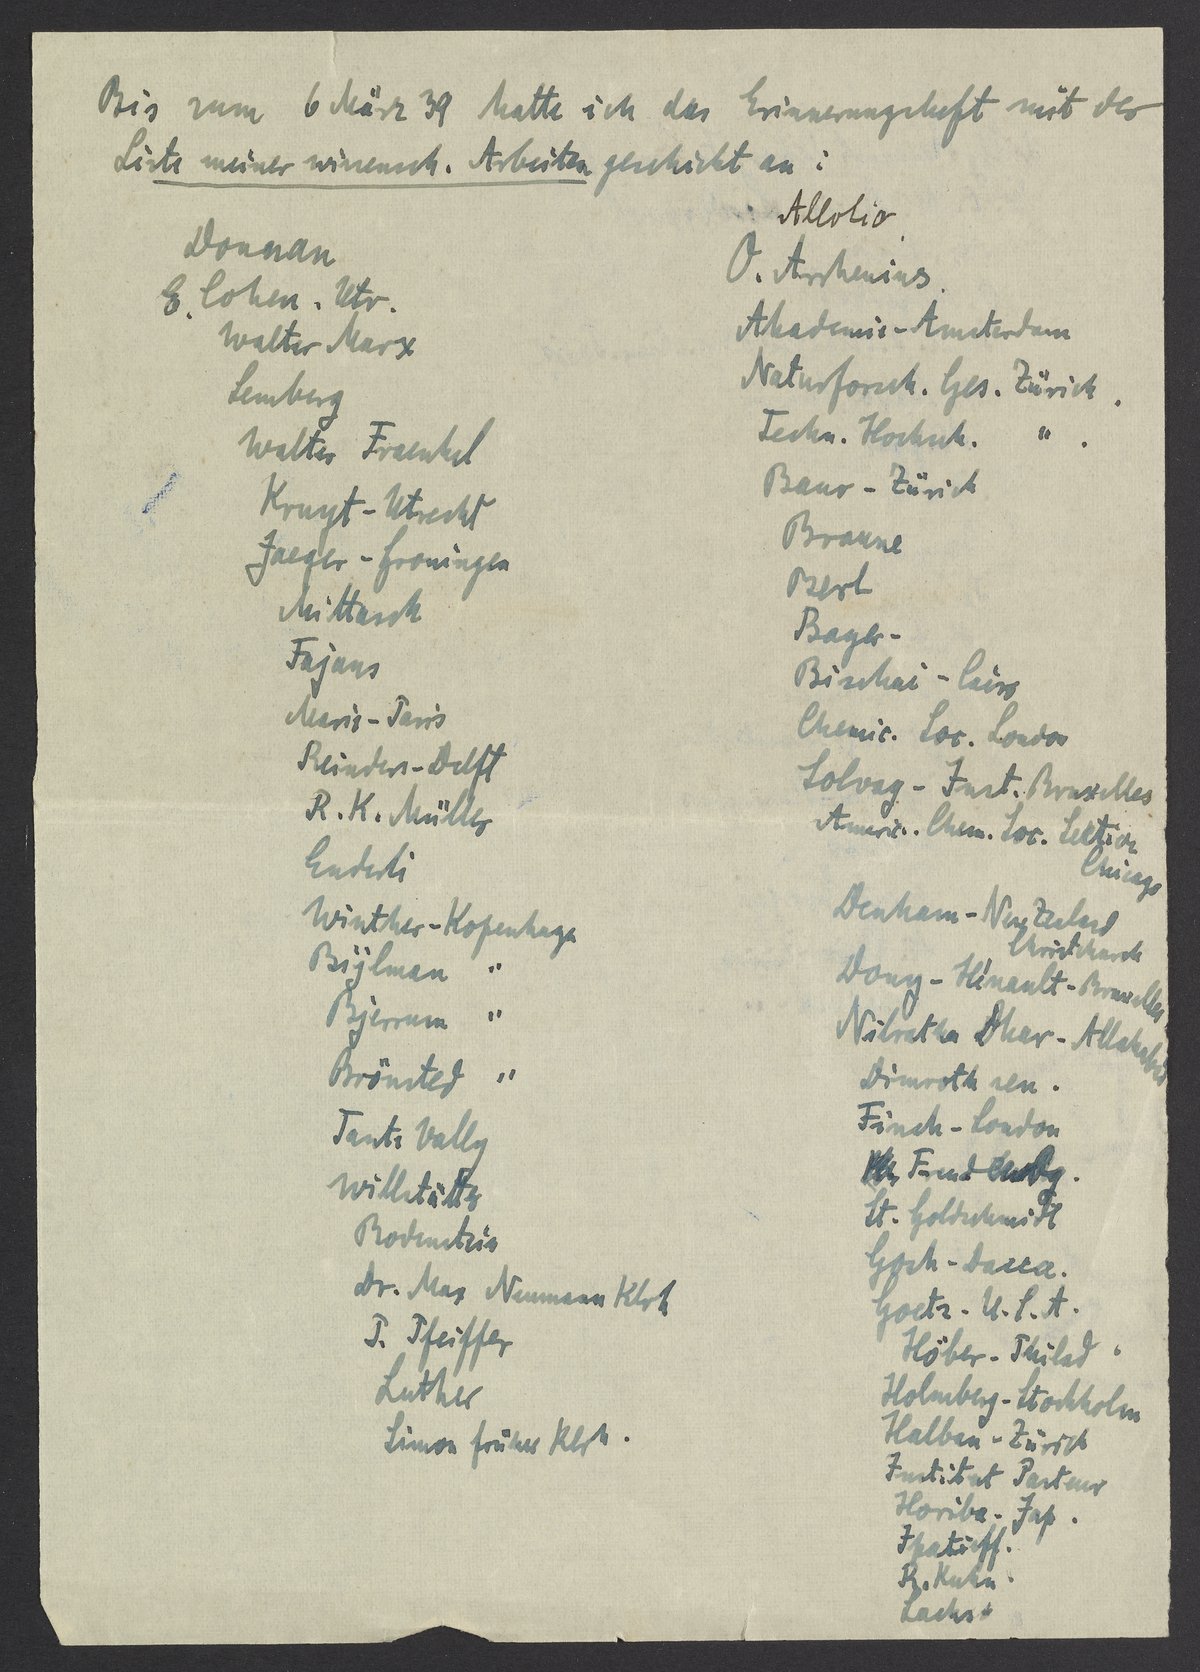 Bis zum 6 März 39 hatte ich das Erinnerungsheft mit der
Liste meiner wissensch. Arbeiten geschickt an :
Donnan
E. Cohen. Utr.
Walter Marx
Lemberg
Walter Fraenkel
Kruyt - Utrecht
Jaeger - Groningen
Mittasch
Fajans
Marie - Paris
Reinders - Delft
R. K. Müller
Enderli
Winther - Kopenhage
Biilman "
Bjerrum "
Brönsted "
Tante Vally
Willstätter
Bodenstein
Dr. Max Neumann Klrh
P. Pfeiffer
Luther
Simon früher Klrh.
Allolio
O. Arrhenius.
Akademie - Amsterdam
Naturforsch. Ges. Zürich.
Techn. Hochsch. " .
Baur - Zürich
Braune
Berl
Bayer -
Bischai - Cairo
Chemic. Soc. London
Solvay - Inst. Bruxelles
Americ. Chem. Soc. Sektion
Chicago
Denham - New Zealand
Christchurch
Dony - Hénault - Bruxelles
Nilratha Dhar - Allahabad
Dimroth sen.
Finch - London
St. Goldschmidt
Gosh - Dacca.
Goetz - U.S.A.
Höber - Philad.
Holmberg - Stockholm
Halban - Zürich
Institut Pasteur
Horiba - Jap.
Ipatieff.
R. Kuhn.
Lachs